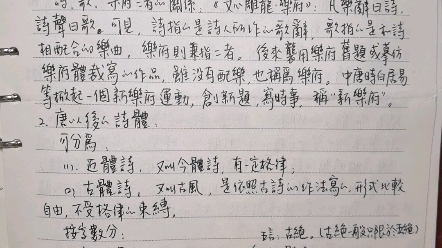 的。歌、 府者二者的關係,《文心雕龍·樂府》:凡樂辭曰詩,
詩聲曰歌。可見,詩指的是詩人所作的歌辭,歌指的是和詩
相配合的樂曲,樂府則兼指二者。後來襲用樂府舊題或摹仿
樂府體裁寫的作品,雖没有配樂,也稱爲樂府。中唐時白居易
等掀起一個新樂府運動,創新題,寫時事,稱“新樂府”。
2. 唐以後的詩體:
可分爲:
(1). 近體詩,又叫今體詩,有一定格律,
(2) 古體詩,又叫古風,是依照古詩的作法寫的,形式比較
自由,不受格律的束縛。
按字數分:
古絶。(古絶一般只限於五絶)